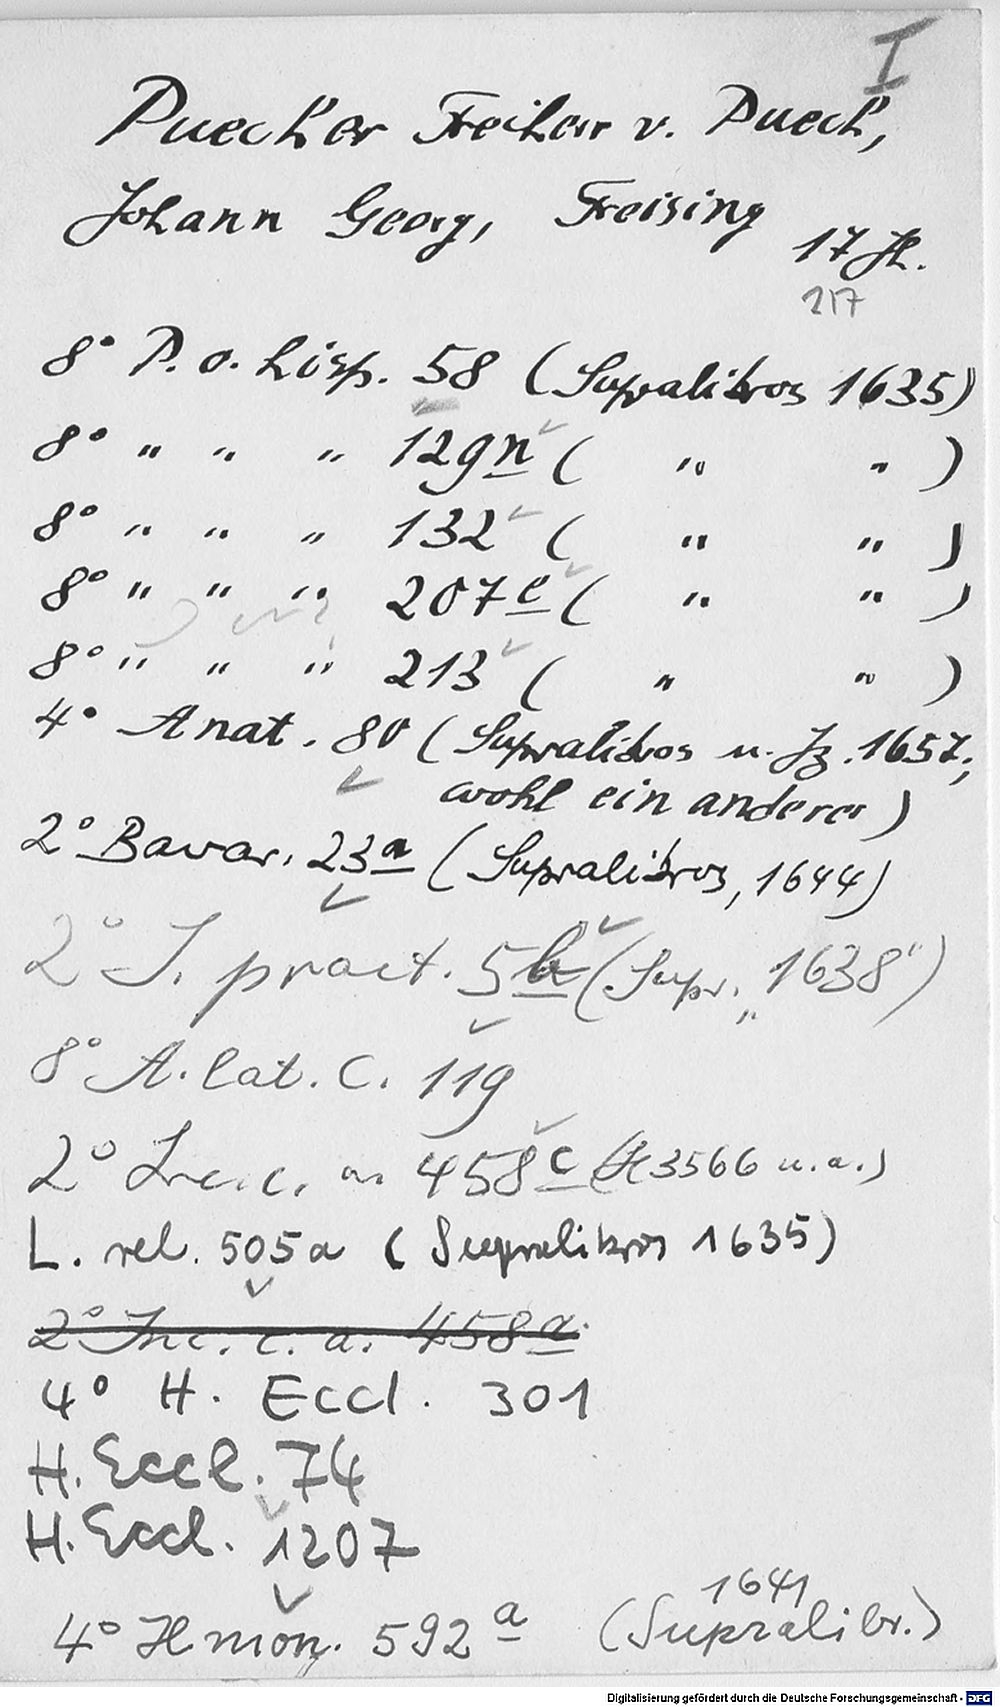 I
Puecher Freiherr v. Puech,
Johann Georg, Freising
17 Jh.
217
8° P. o. hisp. 58 (Supralibros 1635)
8° " " " 129n ( " " )
8° " " " 132 ( " " )
8° " " " 207e ( " " )
8° " " " 213 ( " " )
4° Anat. 80 (Supralibros u. Jz. 1657;
wohl ein anderer)
2° Bavar. 23a (Supralibros, 1644)
2° J. pract. 5b (Supr. „1638")
8° A. lat. C. 119
2° Inc. c. a. 458c (H 3566 u. a.)
L. rel. 505a (Supralibros 1635)
2° Inc. c. a. 458a.
4° H. Eccl. 301
H. Eccl. 74
H. Eccl. 1207
1641
4° H mon. 592a (Supralibr.)
Digitalisierung gefördert durch die Deutsche Forschungsgemeinschaft - DFG